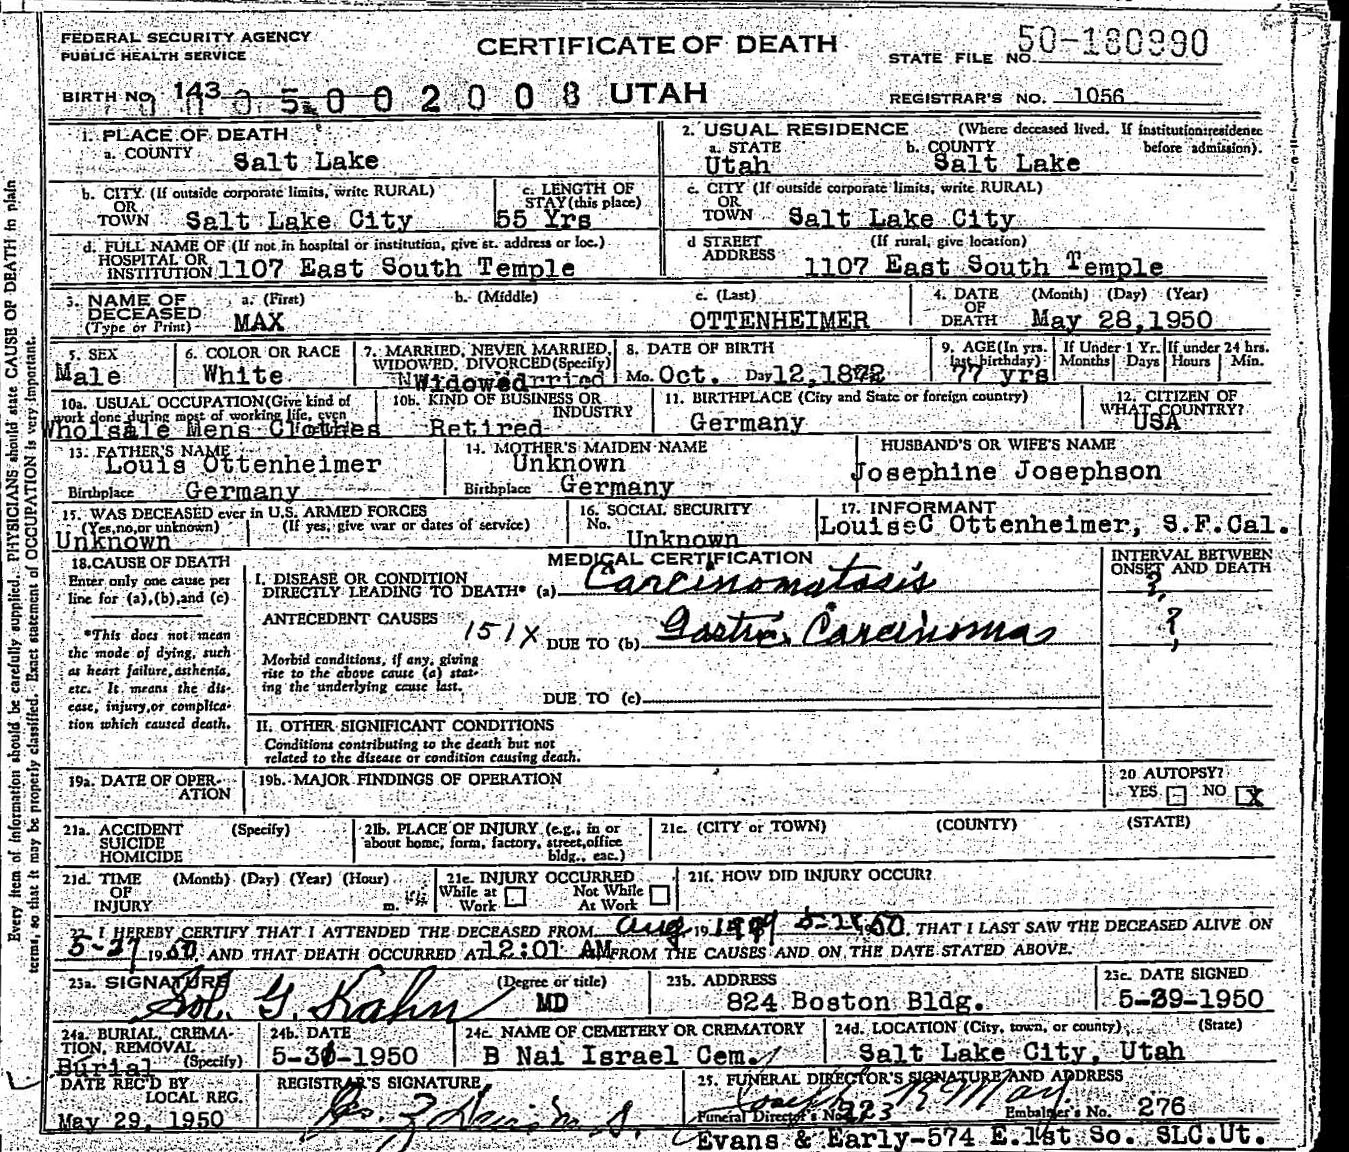 FEDERAL SECURITY AGENCY
PUBLIC HEALTH SERVICE
CERTIFICATE OF DEATH
STATE FILE NO. 50-180990
BIRTH NO. 143 005002008 UTAH
REGISTRAR'S NO. 1056
1. PLACE OF DEATH
a. COUNTY Salt Lake
2. USUAL RESIDENCE (Where deceased lived. If institution:residence before admission).
a. STATE Utah b. COUNTY Salt Lake
b. CITY (If outside corporate limits, write RURAL) OR TOWN Salt Lake City
c. LENGTH OF STAY (this place) 55 Yrs
c. CITY (If outside corporate limits, write RURAL) OR TOWN Salt Lake City
d. FULL NAME OF (If not in hospital or institution, give st. address or loc.) HOSPITAL OR INSTITUTION 1107 East South Temple
d STREET ADDRESS (If rural, give location) 1107 East South Temple
3. NAME OF DECEASED (Type or Print) a. (First) MAX b. (Middle) c. (Last) OTTENHEIMER
4. DATE OF DEATH (Month) (Day) (Year) May 28,1950
5. SEX Male
6. COLOR OR RACE White
7. MARRIED, NEVER MARRIED, WIDOWED, DIVORCED (Specify) Widowed
8. DATE OF BIRTH Mo. Oct. Day 12,1872
9. AGE (In yrs. last birthday) 77 yrs
If Under 1 Yr. Months Days
If under 24 hrs. Hours Min.
10a. USUAL OCCUPATION (Give kind of work done during most of working life, even Wholsale Mens Clothes
10b. KIND OF BUSINESS OR INDUSTRY Retired
11. BIRTHPLACE (City and State or foreign country) Germany
12. CITIZEN OF WHAT COUNTRY? USA
13. FATHER'S NAME Louis Ottenheimer
Birthplace Germany
14. MOTHER'S MAIDEN NAME Unknown
Birthplace Germany
HUSBAND'S OR WIFE'S NAME Josephine Josephson
15. WAS DECEASED ever in U.S. ARMED FORCES (Yes,no,or unknown) (If yes, give war or dates of service) Unknown
16. SOCIAL SECURITY No. Unknown
17. INFORMANT LouiseC Ottenheimer, S.F.Cal.
18. CAUSE OF DEATH
Enter only one cause per line for (a),(b),and (c)
*This does not mean the mode of dying, such as heart failure, asthenia, etc. It means the disease, injury,or complication which caused death.
MEDICAL CERTIFICATION
INTERVAL BETWEEN ONSET AND DEATH
I. DISEASE OR CONDITION DIRECTLY LEADING TO DEATH* (a) Carcinomatosis ?
ANTECEDENT CAUSES 151X DUE TO (b) Gastric Carcinoma ?
Morbid conditions, if any, giving rise to the above cause (a) stating the underlying cause last.
DUE TO (c)
II. OTHER SIGNIFICANT CONDITIONS
Conditions contributing to the death but not related to the disease or condition causing death.
19a. DATE OF OPERATION
19b. MAJOR FINDINGS OF OPERATION
20 AUTOPSY? YES NO X
21a. ACCIDENT SUICIDE HOMICIDE (Specify)
21b. PLACE OF INJURY (e.g., in or about home, form, factory, street,office bldg., eac.)
21c. (CITY or TOWN) (COUNTY) (STATE)
21d. TIME OF INJURY (Month) (Day) (Year) (Hour) m.
21e. INJURY OCCURRED While at Work Not While At Work
21f. HOW DID INJURY OCCUR?
22. I HEREBY CERTIFY THAT I ATTENDED THE DECEASED FROM Aug 19 5-28 50, THAT I LAST SAW THE DECEASED ALIVE ON
5-27 1950 AND THAT DEATH OCCURRED AT 12:01 AM FROM THE CAUSES AND ON THE DATE STATED ABOVE.
23a. SIGNATURE Sol. G. Kahn (Degree or title) MD
23b. ADDRESS 824 Boston Bldg.
23c. DATE SIGNED 5-29-1950
24a. BURIAL, CREMATION, REMOVAL (Specify) Burial
24b. DATE 5-30-1950
24c. NAME OF CEMETERY OR CREMATORY B Nai Israel Cem.
24d. LOCATION (City, town, or county) (State) Salt Lake City, Utah
DATE REC'D BY LOCAL REG. May 29, 1950
REGISTRAR'S SIGNATURE
25. FUNERAL DIRECTOR'S SIGNATURE AND ADDRESS
Funeral Director's No. 223 Embalmer's No. 276
Evans & Early-574 E.1st So. SLC.Ut.
Every item of information should be carefully supplied. PHYSICIANS should state CAUSE OF DEATH in plain
terms, so that it may be properly classified. Exact statement of OCCUPATION is very important.